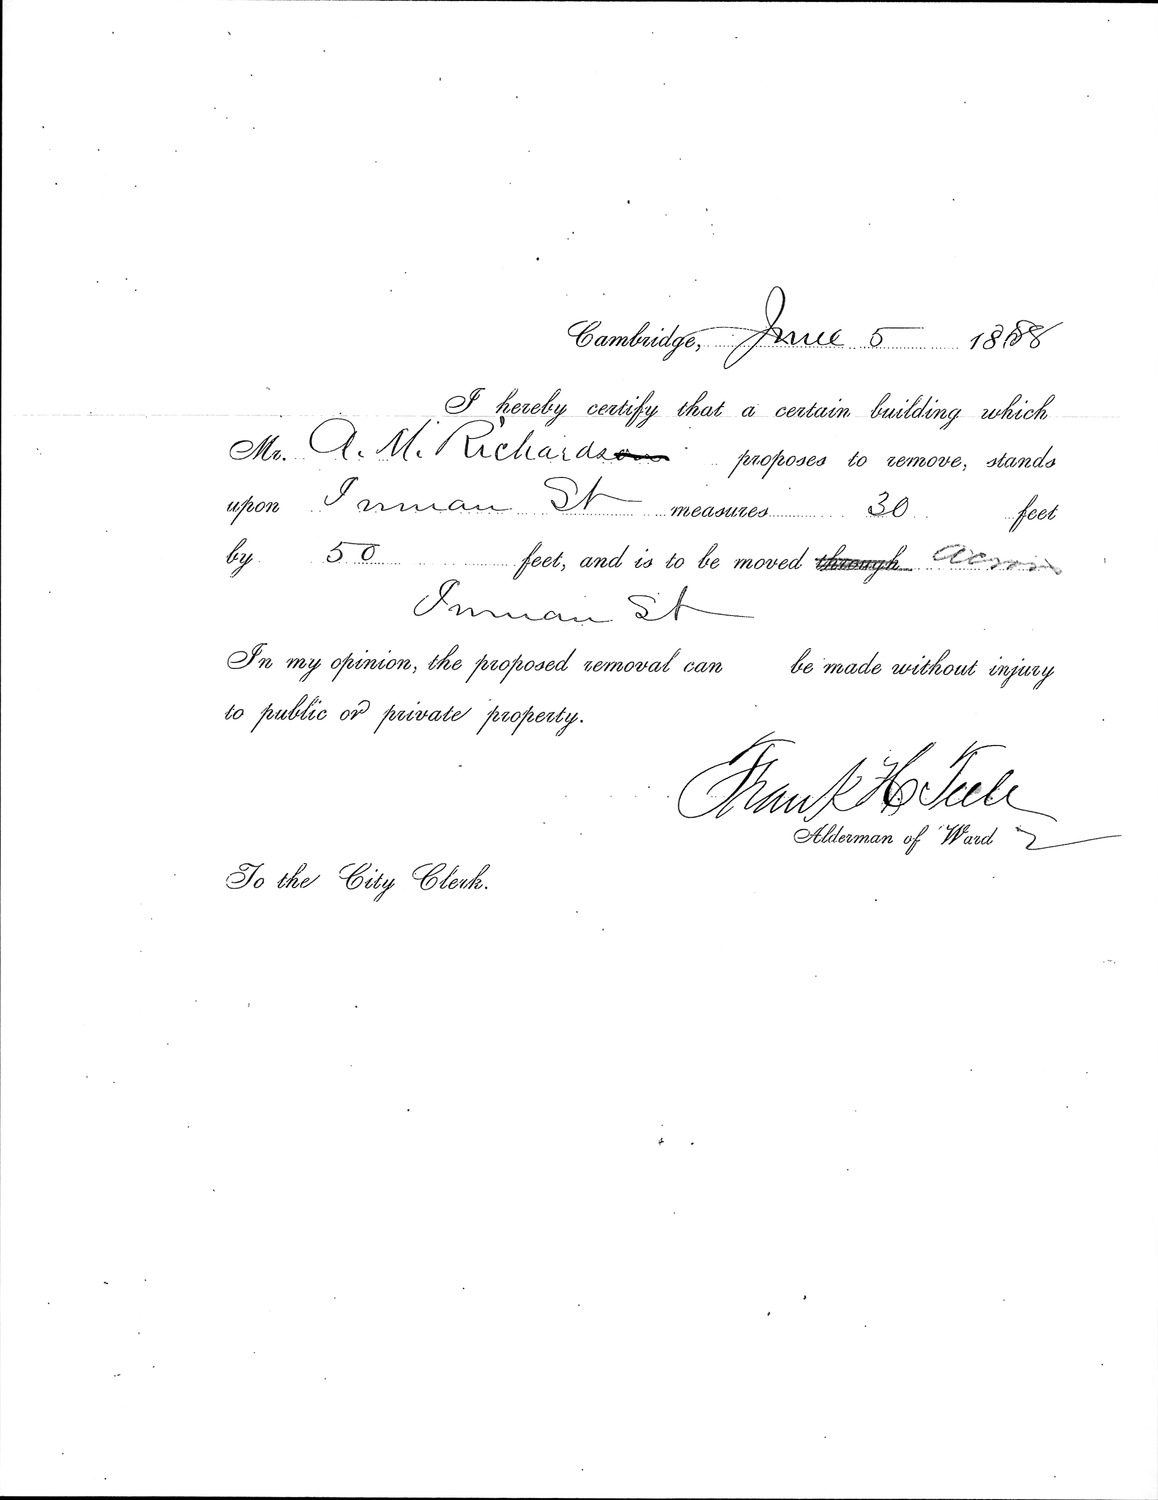 Cambridge, June 5 1888
I hereby certify that a certain building which
Mr. A. M. Richards proposes to remove, stands
upon Inman St measures 30 feet
by 50 feet, and is to be moved through across
Inman St
In my opinion, the proposed removal can be made without injury
to public or private property.
Frank H Teele
Alderman of Ward 2
To the City Clerk.